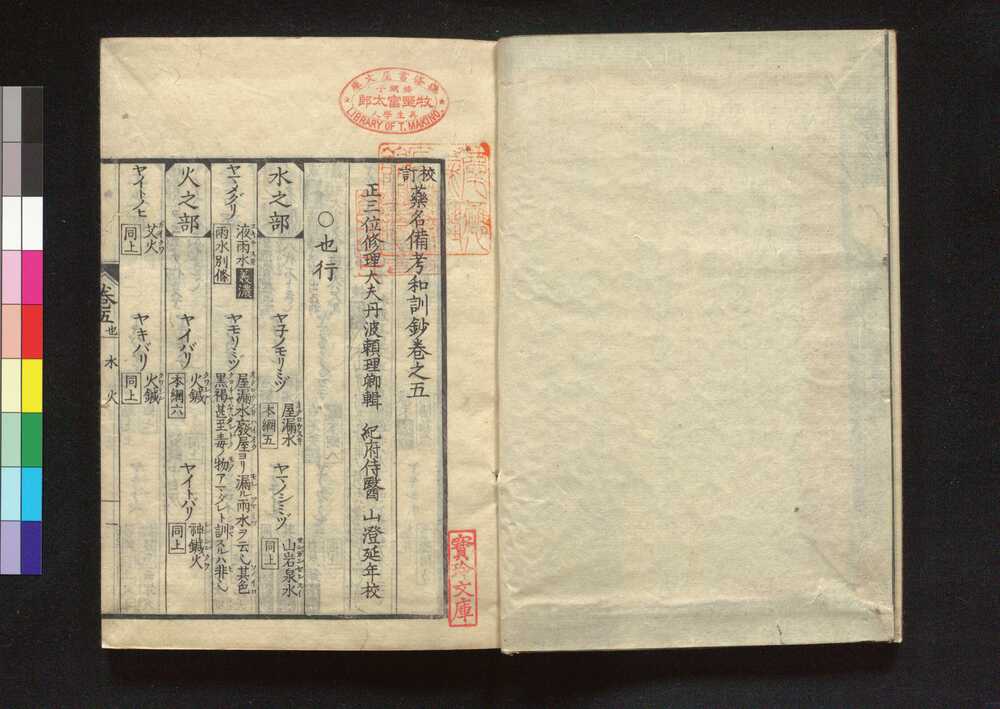 牧野富太郎
LIBRARY OF T. MAKINO.
校訂
藥名備考和訓鈔卷之五
正三位修理大夫丹波頼理卿輯 紀府侍醫 山澄延年校
○也行
水之部
ヤ子ノモリミヅ 屋漏水 本綱五
ヤマノシミヅ 山岩泉水 同上
ヤマメグリ 液雨水 義濃 雨水別條
ヤモリミヅ 屋漏水廢屋ヨリ漏ル雨水ヲ云也其色
黒褐甚至毒ノ物アマダレト訓スルハ非也
火之部
ヤイバリ 火鍼 本綱六
ヤイトバリ 神鍼火 同上
ヤイトノヒ 艾火 同上
ヤキバリ 火鍼 同上
卷五 也 水 火 一
寶玲文庫